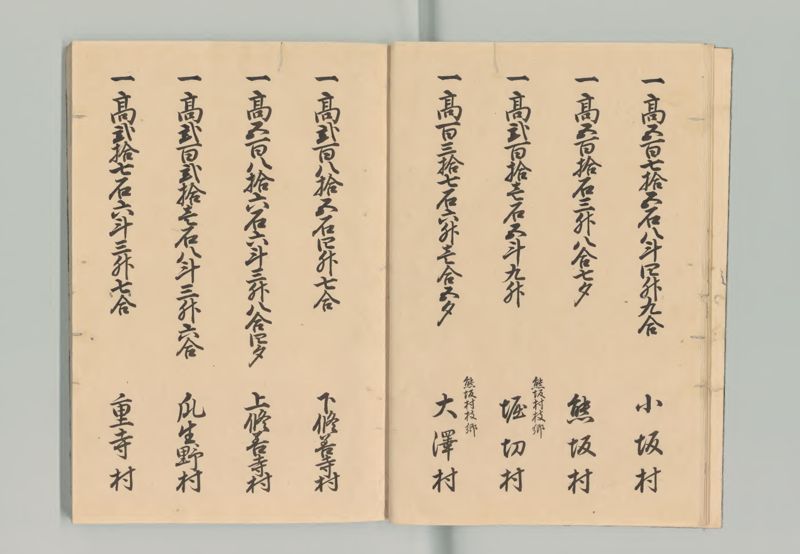 一高五百七拾五石八斗四升九合 小坂村
一高五百拾石三升八合七夕 熊坂村
一高弐百拾壱石五斗九升 熊坂村枝郷 堀切村
一高百三拾七石六升壱合五夕 熊坂村枝郷 大澤村
一高弐百八拾五石四升七合 下修善寺村
一高五百八拾六石六斗三升八合四夕 上修善寺村
一高弐百弐拾壱石八斗三升六合 瓜生野村
一高弐拾七石六斗三升七合 重寺村